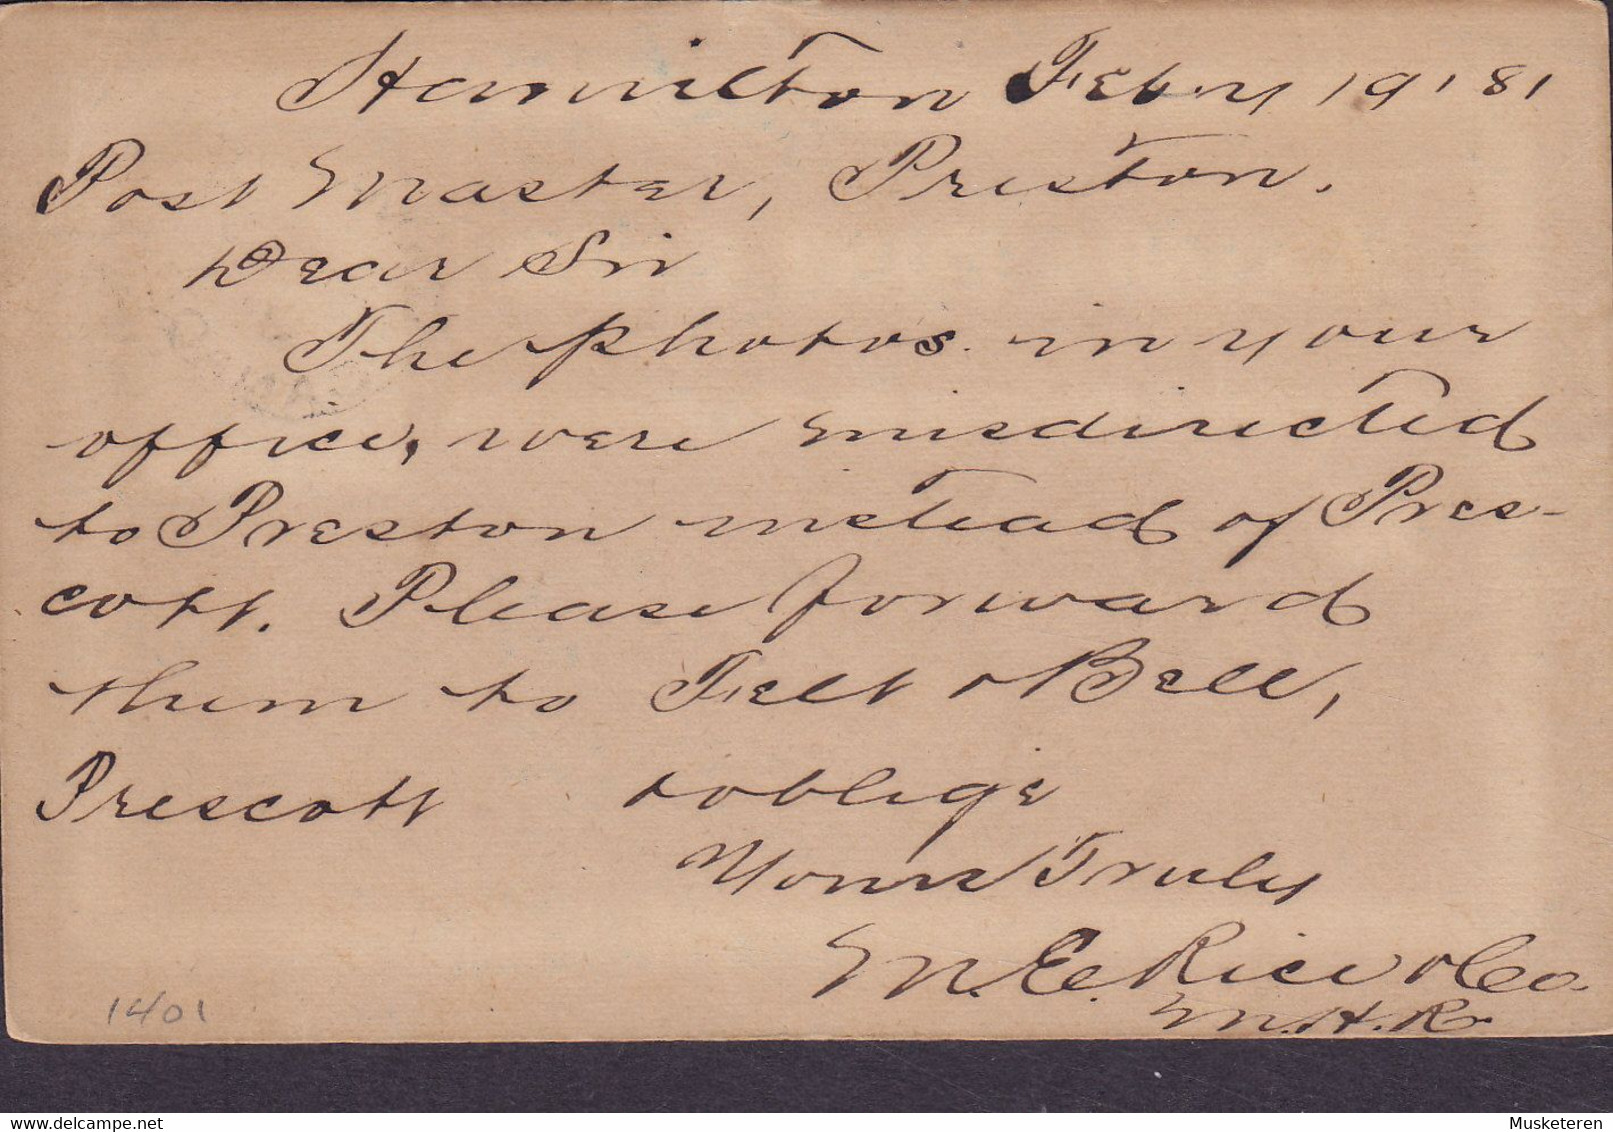 Hamilton Feby 19 '81
Post Master, Preston.
Dear Sir
The photos in your
office, were misdirected
to Preston instead of Pres-
cott. Please forward
them to Felt & Bell,
Prescott & oblige
Yours Truly
M. E. Rice & Co.
M. H. R.
1401
delcampe.net
Musketeren